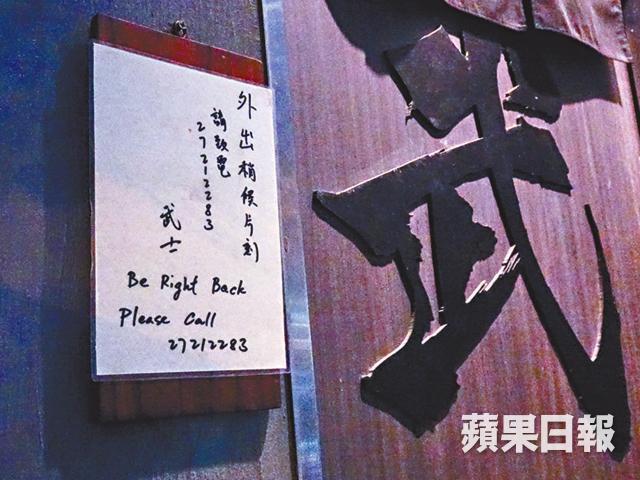 外出稍候片刻
請致電
27212283
武士
Be Right Back
Please Call
27212283
武
蘋果日報